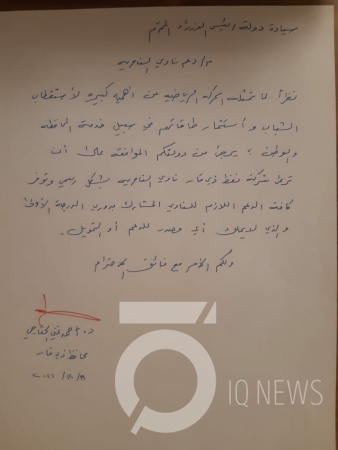 سيادة دولة رئيس الوزراء المحترم
م/ دعم نادي الناصرية
نظراً لما تمثله الحركة الرياضية من أهمية كبيرة لاستقطاب
الشباب واستثمار طاقاتهم نحو سبيل خدمة المحافظة
والوطن ؟ يرجى من دولتكم الموافقة على أن
شركة نفط ذي قار نادي الناصرية بشكل رسمي وتوفر
كافة الدعم اللازم للنادي المشارك بدوري الدرجة الأولى
والذي لا يملك أي مصدر للدعم أو التمويل.
ولكم الأمر مع فائق الاحترام
د. أحمد غني الخفاجي
محافظ ذي قار
IQ NEWS